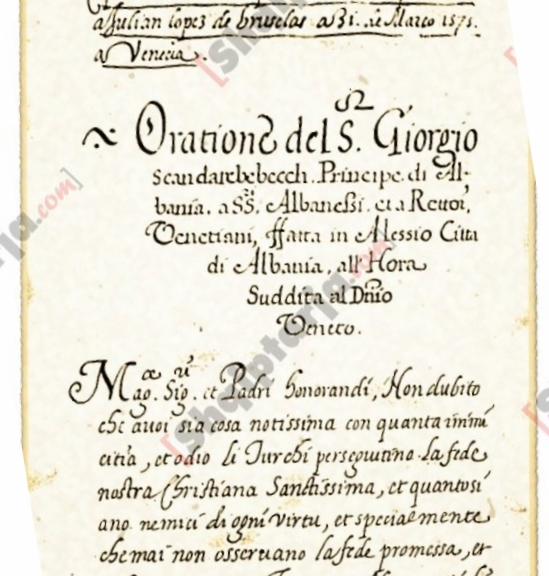 a Julian lopez de bruselas a 31. de Março 1571.
a Venecia.
Oratione del S. Giorgio
Scandarebebecch. Principe. di Al-
bania. a SS. Albanessi. et a Revoi,
Venetiani, ffatta in Alessio Citta
di Albania, all'Hora
Suddita al Dnio
Veneto.
Mag.ce Sig.ri et Padri honorandi, Non dubito
che avoi sia cosa notissima con quanta inimi
citia, et odio li Turchi perseguitino la fede
nostra Christiana Sanctissima, et quanto si
ano nemici di ogni virtu, et specialmente
che mai non osservano la fede promessa, et
[Shqiptarja.com]